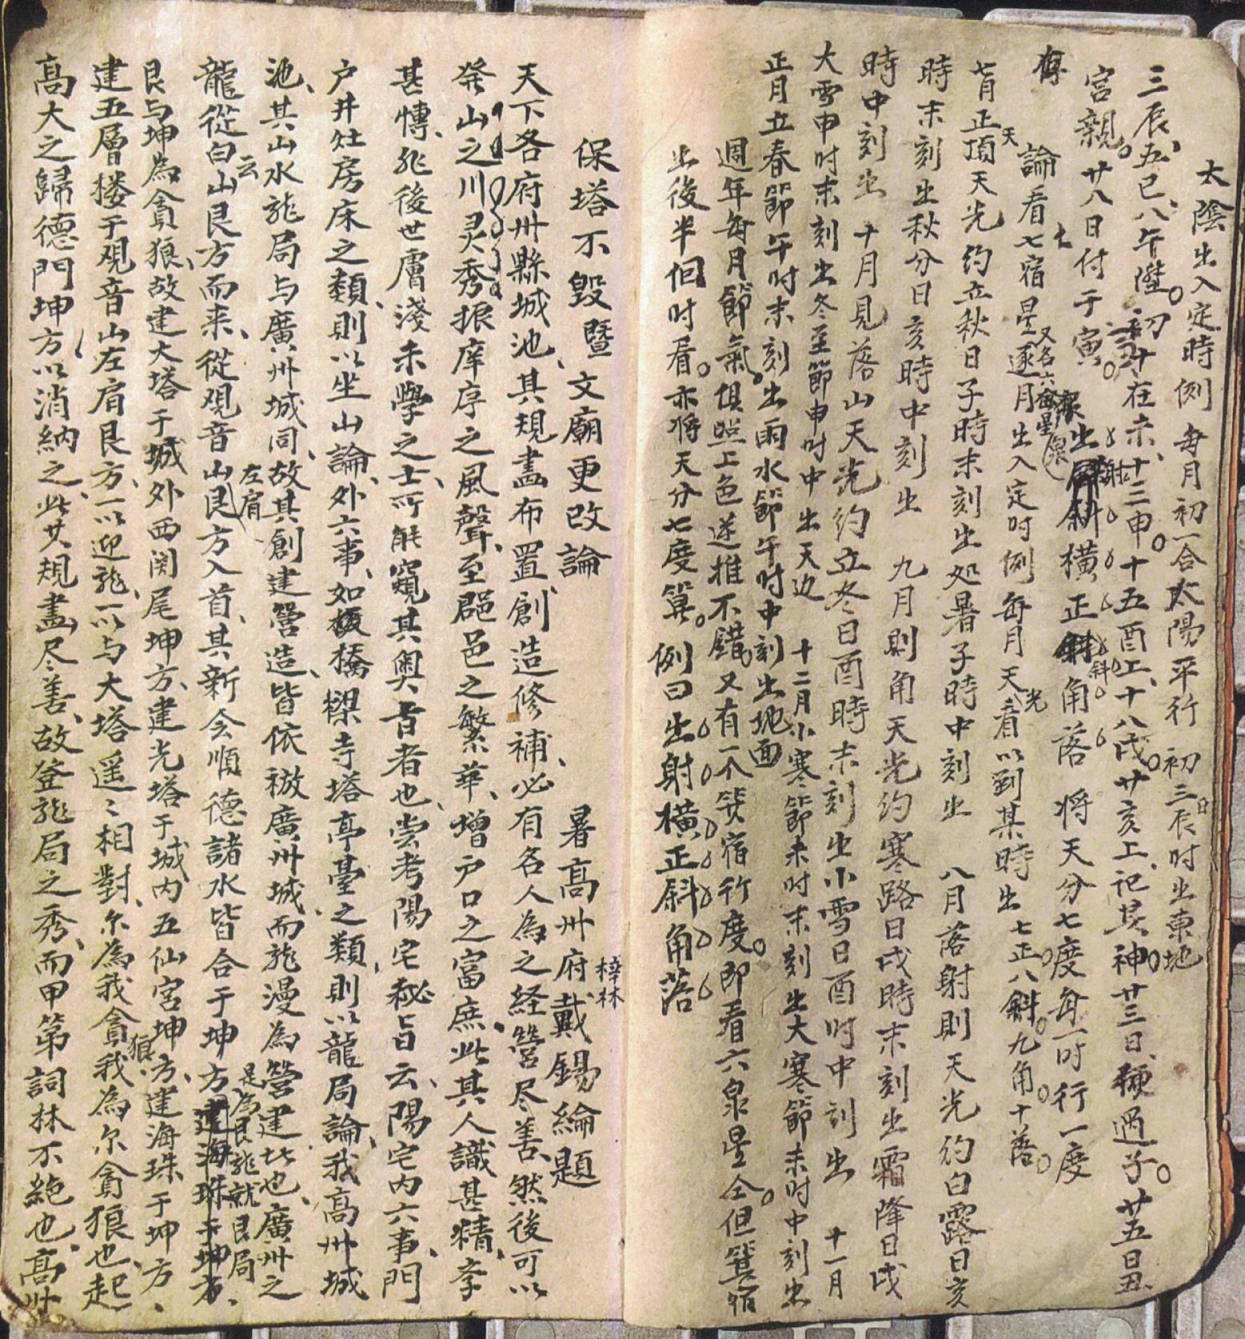 太陰出入定時例 每月初一合太陽平行 初三日辰时出東地
三辰、五巳、八午陞。初十在未、十三申。十五酉上、十八戌。廿亥上記其神。廿三日、過子。廿五日丑
宮親。廿八日付于寅。出射斜橫正斜角落 将天分七度每一时行一度
論看七宿星逐月出入定时例 每月天光看以到某時出 七正八斜。九角十落。
又名六會星
七月正頂天光約立秋日子時末刻出処暑子時中刻出 八月落射則天光約白露日亥
時末刻出秋分日亥時中刻出 九月則角天光約寒路日戌時末刻出霜降日戌
時中刻出 十月見落山天光約立冬日酉時末刻出小雪日酉时中刻出 十一月
大雪申时末刻出冬至節申时中出天边 十二月小寒節未时末刻出大寒節未时中刻出
正月立春節午时末刻出雨水節午时中刻出地面
週年每月節氣俱照上色逐推不錯。又有一个箕宿行度。即看六泉星仝。但箕宿
出後半個时看。亦将天分七度算。例曰出射橫正斜角落
保塔不毀暨文廟更改論 暑高州府戴錫綸題
梓林
天下各府州縣城池、其規畫布置創造修補、必有名人為之経營尽善、然後可以
発山之川灵秀振庠序之風聲、至郡邑之繁華、增户口之富庶、此其人識甚精、李
甚慱、非後世膚淺未學之士、所能窺其奧旨者也、尝考陽宅秘旨云、陽宅内六事、門
户井灶房床之類、則以坐山論、外六事、如板橋樑寺塔亭臺之類、則以龍局論、我高州城
池、其山水龍局与廣州城同、故其創建營造、皆依倣廣州城、而非漫為營建此也、廣州之
龍從白云山艮方而来、從观音山左肩艮方入首、其新会順德諸水皆合于坤方、是為艮龍就艮局
艮与坤為貪狼、故建大塔于城外西関尾坤方、建光塔于城内五仙宮坤方、建海珠于坤方、
建五層楼于观音山左肩艮方、一以迎龍、一以与大塔遥〻相對、尔為我貪狼、我為尔貪狼也、起
高大之歸德門坤方、以消納之、此其規畫尽善、故登龍局之秀、而甲第詞林不絶也、高州